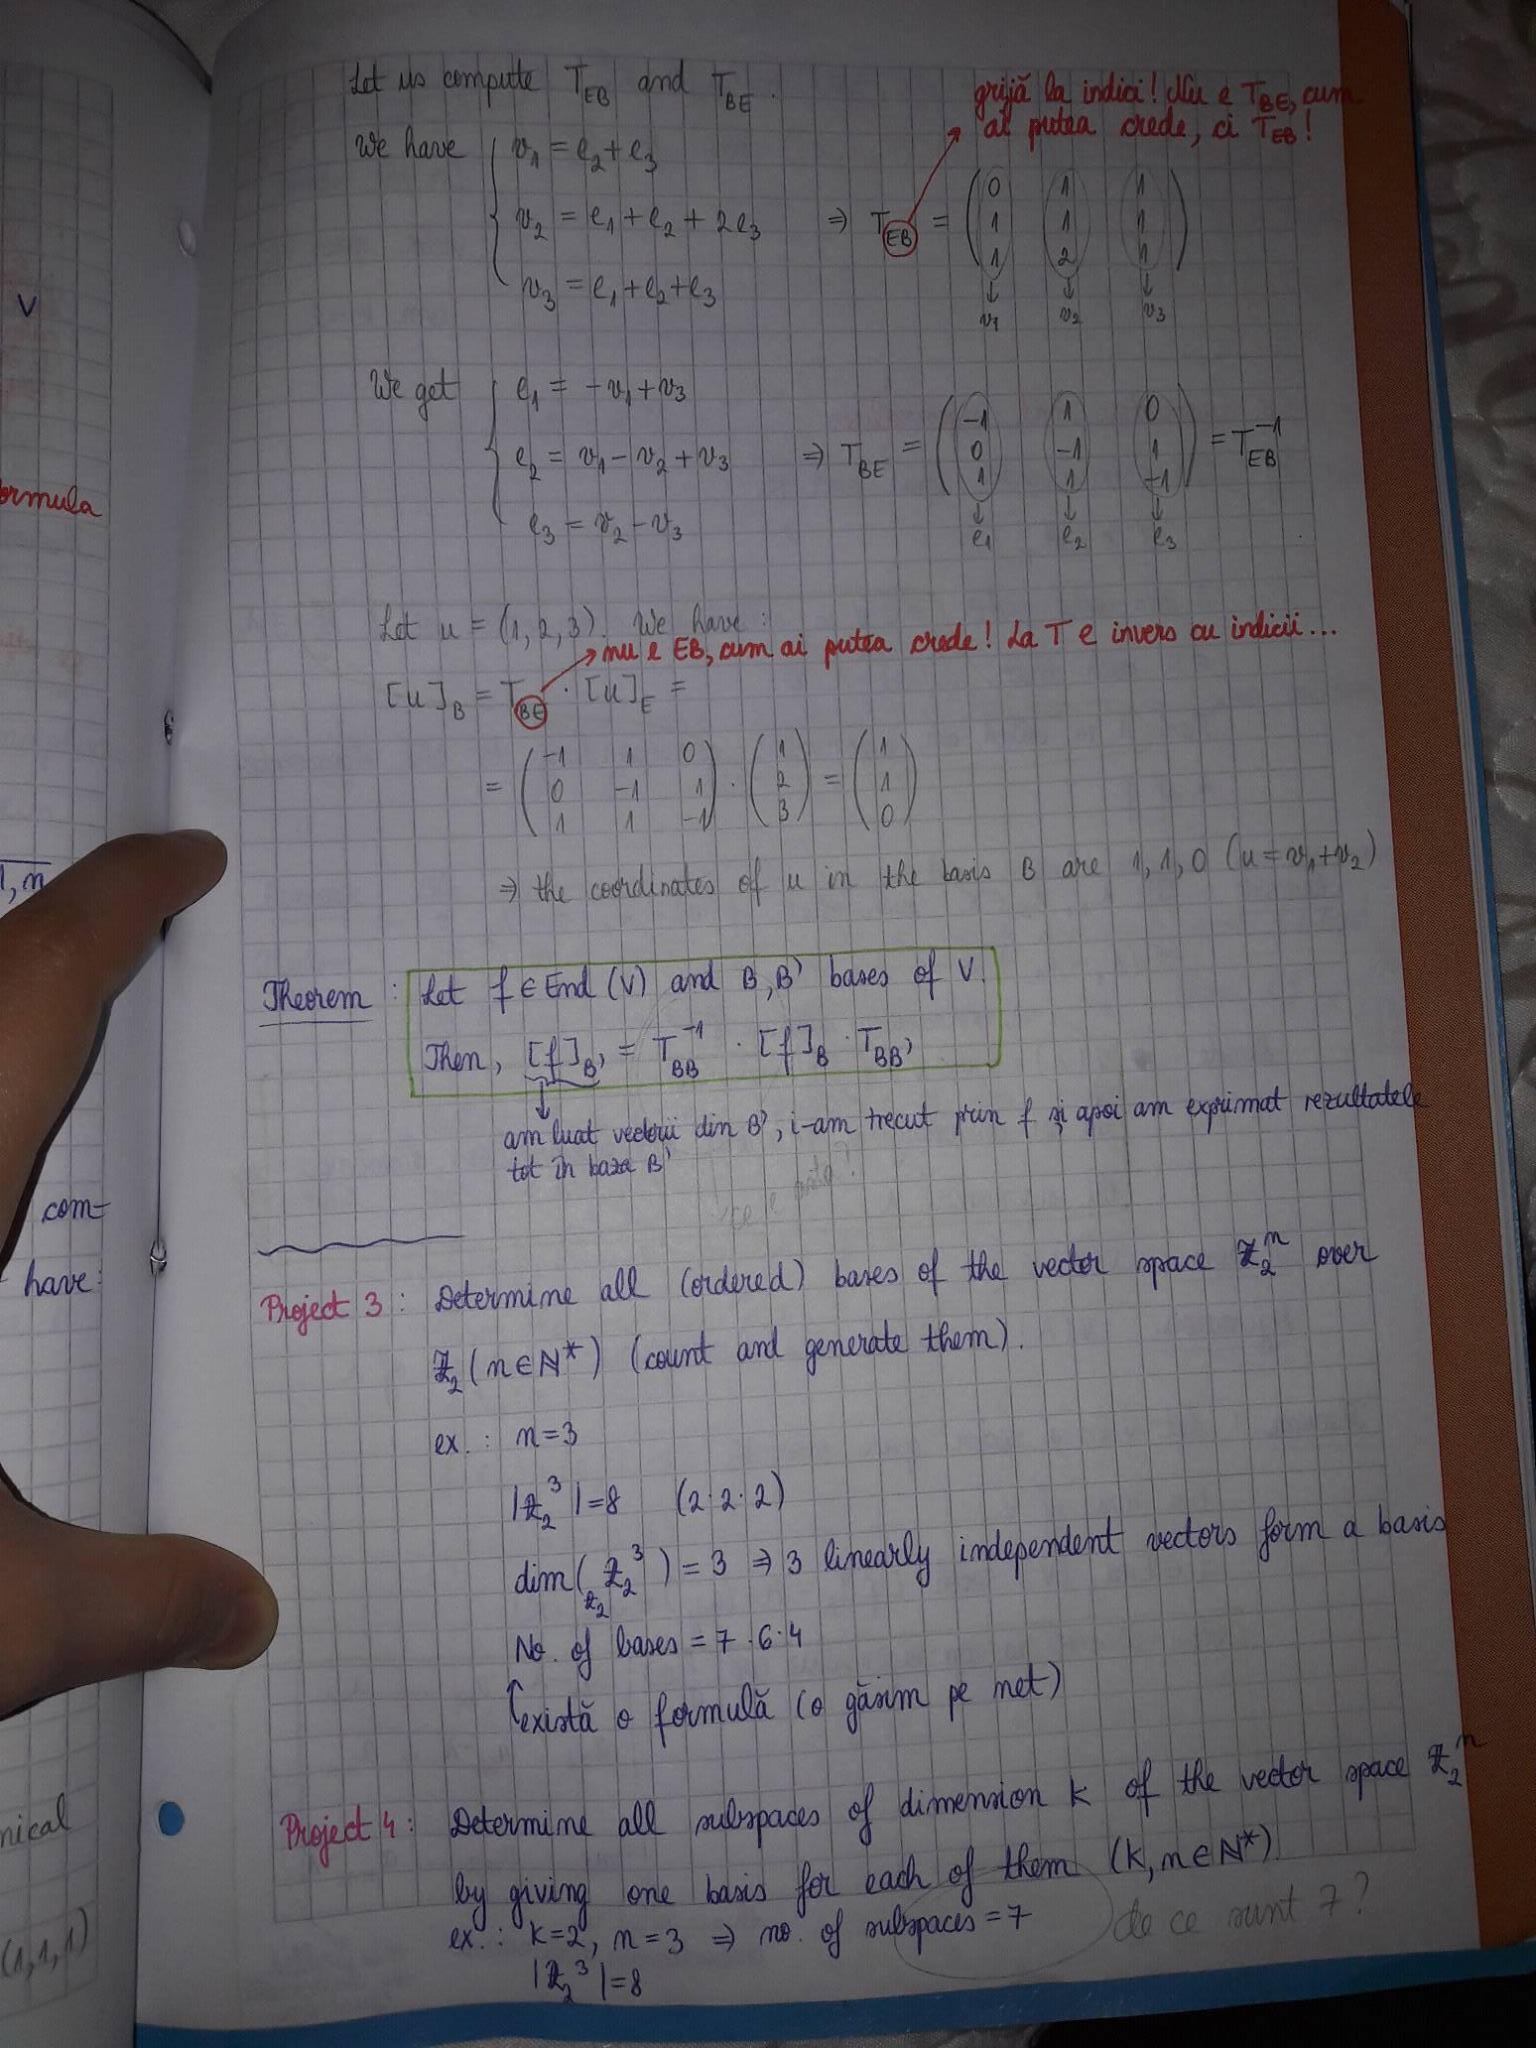 Let us compute T_EB and T_BE.
grijă la indici! Nu e T_BE, cum
ai putea crede, ci T_EB!
We have { v₁ = e₂ + e₃
v₂ = e₁ + e₂ + 2e₃ ⇒ T_EB = ( 0 1 1
1 1 1
1 2 1 )
v₃ = e₁ + e₂ + e₃
↓ ↓ ↓
v₁ v₂ v₃
We get { e₁ = -v₁ + v₃
e₂ = v₁ - v₂ + v₃ ⇒ T_BE = ( -1 1 0
0 -1 1
1 1 -1 ) = T_EB⁻¹
e₃ = v₂ - v₃
↓ ↓ ↓
e₁ e₂ e₃
Let u = (1, 2, 3). We have:
→ nu e EB, cum ai putea crede! La T e invers cu indicii...
[u]_B = T_BE · [u]_E =
= ( -1 1 0
0 -1 1
1 1 -1 ) · ( 1
2
3 ) = ( 1
1
0 )
⇒ the coordinates of u in the basis B are 1, 1, 0 (u = v₁ + v₂)
Theorem: Let f ∈ End (V) and B, B' bases of V.
Then, [f]_B' = T_BB'⁻¹ · [f]_B · T_BB'
↓
am luat vectorii din B', i-am trecut prin f și apoi am exprimat rezultatele
tot în baza B'
Project 3: Determine all (ordered) bases of the vector space ℤ₂ⁿ over
ℤ₂ (n ∈ ℕ*) (count and generate them).
ex.: n = 3
|ℤ₂³| = 8 (2·2·2)
dim(_ℤ₂ ℤ₂³) = 3 ⇒ 3 linearly independent vectors form a basis
No. of bases = 7·6·4
↑ există o formulă (o găsim pe net)
Project 4: Determine all subspaces of dimension k of the vector space ℤ₂ⁿ
by giving one basis for each of them (k, n ∈ ℕ*)
ex.: k = 2, n = 3 ⇒ no. of subspaces = 7 de ce sunt 7?
|ℤ₂³| = 8
V
ormula
1, n
com-
have:
nical
(1, 1, 1)